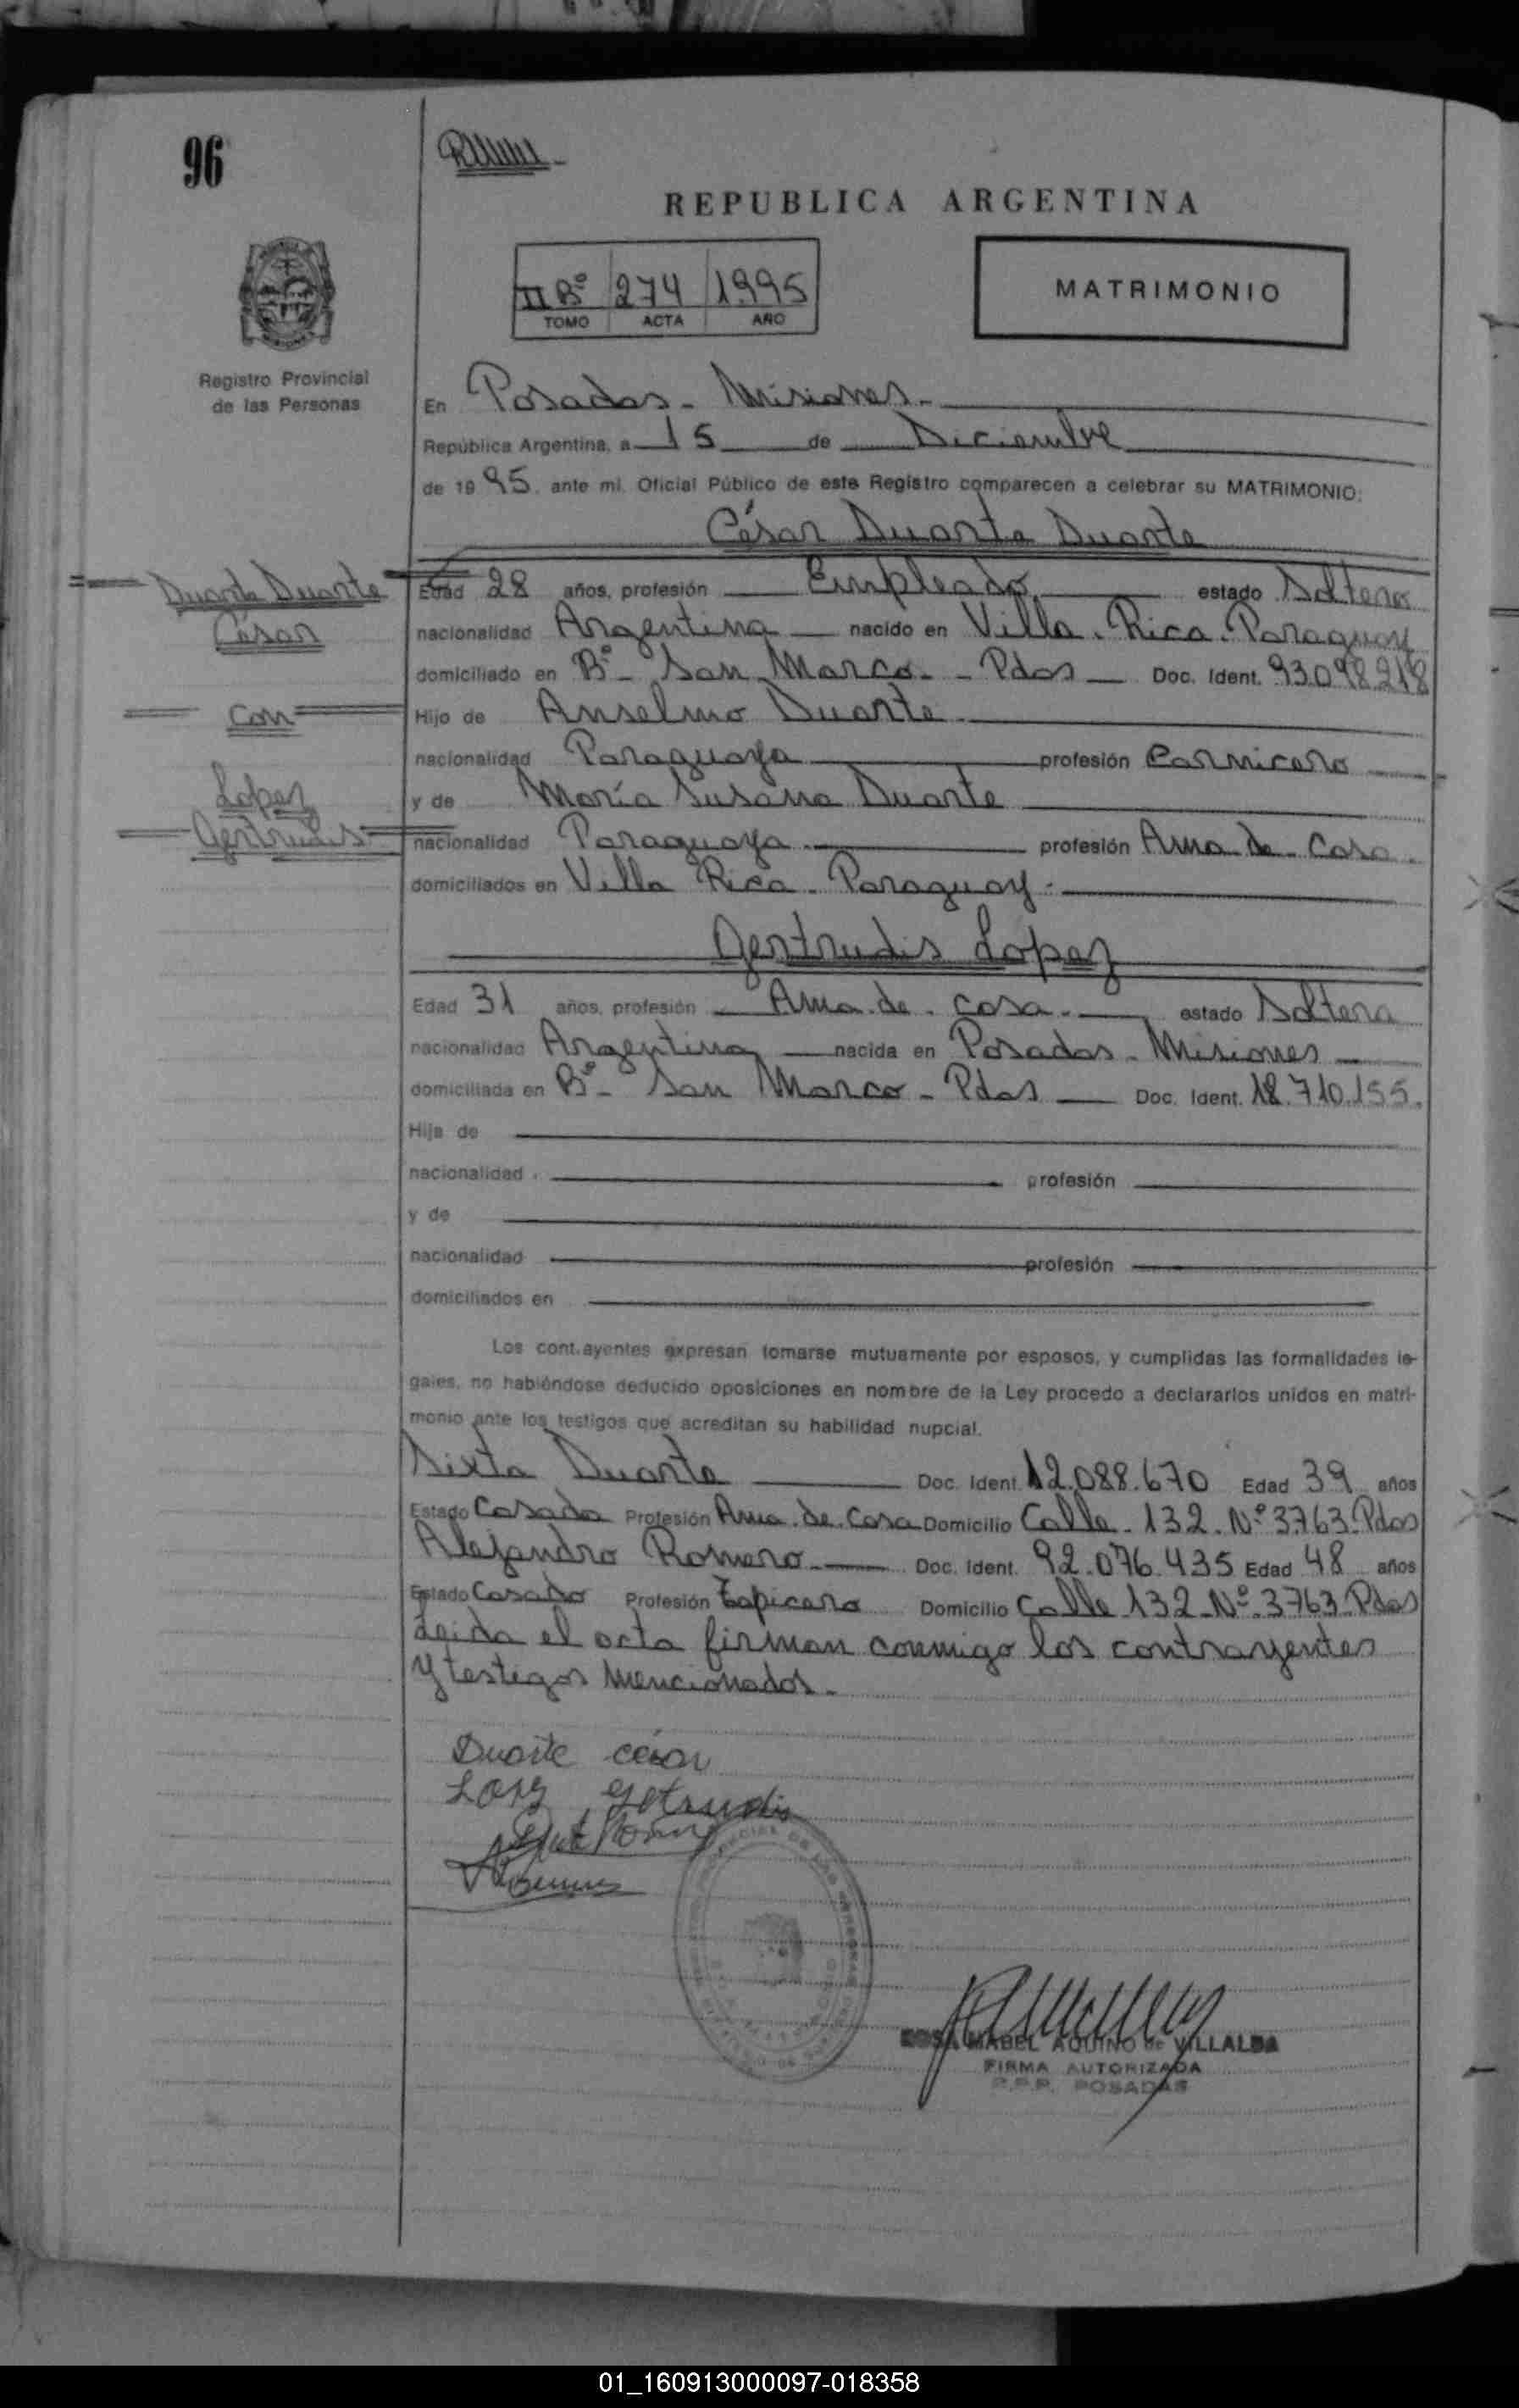 96
REPUBLICA ARGENTINA
II Bº 274 1995
TOMO ACTA AÑO
MATRIMONIO
Registro Provincial
de las Personas
En Posadas - Misiones -
República Argentina, a 15 de Diciembre
de 1995. ante mi. Oficial Público de este Registro comparecen a celebrar su MATRIMONIO:
César Duarte Duarte
Duarte Duarte
César
con
Lopez
Gertrudis
Edad 28 años, profesión Empleado. estado Soltero
nacionalidad Argentina nacido en Villa. Rica. Paraguay
domiciliado en Bº - San Marco. - Pdas Doc. Ident. 93.098.218
Hijo de Anselmo Duarte
nacionalidad Paraguaya profesión Carnicero
y de María Susana Duarte
nacionalidad Paraguaya profesión Ama de Casa.
domiciliados en Villa Rica. Paraguay.
Gertrudis Lopez
Edad 31 años, profesión Ama. de. casa. estado Soltera
nacionalidad Argentina nacida en Posadas - Misiones
domiciliada en Bº - San Marco - Pdas Doc. Ident. 18.710.155.
Hija de
nacionalidad profesión
y de
nacionalidad profesión
domiciliados en
Los contrayentes expresan tomarse mutuamente por esposos, y cumplidas las formalidades le-
gales, no habiéndose deducido oposiciones en nombre de la Ley procedo a declararlos unidos en matri-
monio ante los testigos que acreditan su habilidad nupcial.
Sixta Duarte Doc. Ident. 12.088.670 Edad 39 años
Estado Casada Profesión Ama. de. Casa Domicilio Calle. 132. Nº 3763. Pdas
Alejandro Romero. Doc. Ident. 92.076.435 Edad 48 años
Estado Casado Profesión Tapicero Domicilio Calle 132. Nº. 3763. Pdas
Leida el acta firman conmigo los contrayentes
y testigos mencionados.
Duarte césar
ROSA MABEL AQUINO de VILLALBA
FIRMA AUTORIZADA
R.P.P. POSADAS
01_160913000097-018358